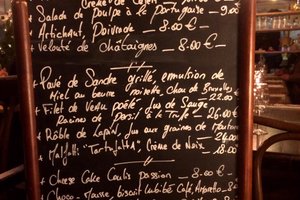 Crème de Céleri
Salade de Poulpe à la Portugaise _ 9.00
Artichaut, Poivrade _ 8.00 €
Velouté de Châtaignes _ 8.00 €
+ Pavé de Sandre grillé, émulsion de
Miel au beurre noisette, Chou de Bruxelles
22.00
+ Filet de Veau poêlé, Jus de Sauge
Racines de Persil à la Truffe _ 26.00 €
+ Râble de Lapin, Jus aux graines de Moutarde
+ Malfatti "Tartufatta", Crème de Noix _ 18.00
+ Cheese Cake Coulis passion _ 8.00 €
+ Choco - Mousse, biscuit imbibé Café, Amaretto _ 8